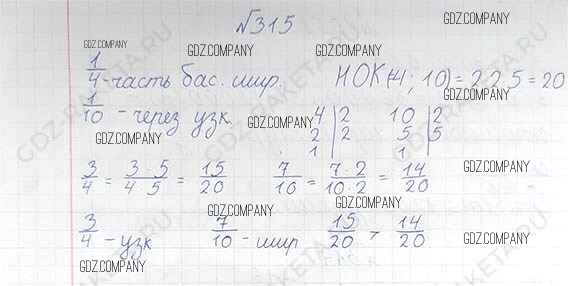 №315
1/4 - часть бас. шир. НОК(4; 10) = 2 2 5 = 20
1/10 - через узк. 4 | 2 10 | 2
2 | 2 5 | 5
1 | 1 |
3/4 = 3 5/4 5 = 15/20 7/10 = 7·2/10·2 = 14/20
3/4 - узк 7/10 - шир 15/20 > 14/20
GDZ.COMPANY
GDZ.COMPANY
GDZ.COMPANY
GDZ.COMPANY
GDZ.COMPANY
GDZ.COMPANY
GDZ.COMPANY
GDZ.COMPANY
GDZ.COMPANY
GDZ.COMPANY
GDZ.COMPANY
GDZ-RAKETA.RU